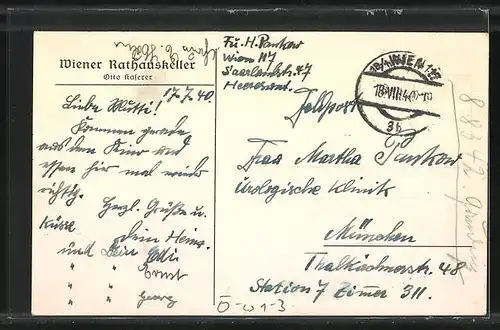 Wiener Rathauskeller
Otto Kaserer
17.7.40.
Liebe Mutti!
Kommen gerade
aus dem Kino und
essen hir mal wieder
richtig.
Herzl. Grüße u.
Küsse Dein Heinz.
und Dein Edi
" " Ernst
" " Georg
Fü. H. Pankow
Wien 117
Saarlandstr. 47
Feldpost
WIEN 117
18.VIII.40
3b
Frau Martha Pankow
Urologische Klinik
München
Thalkirchnerstr. 48
Station 7 Zimmer 311.
Ö-W1-3